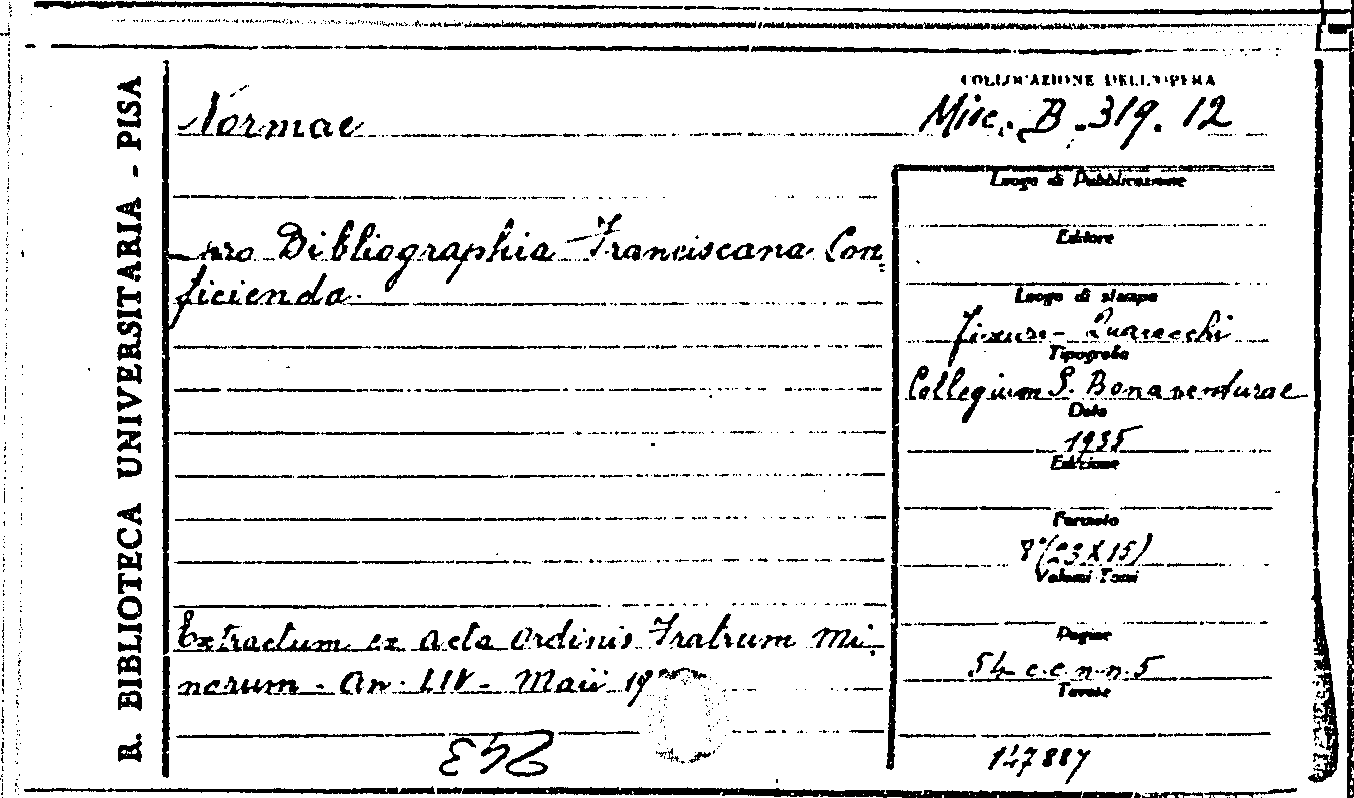 R. BIBLIOTECA UNIVERSITARIA - PISA
COLLOCAZIONE DELL'OPERA
Normae
Misc. B. 319. 12
pro Bibliographia Franciscana Con
ficienda.
Luogo di Pubblicazione
Editore
Luogo di stampa
Firenze - Quaracchi
Tipografia
Collegium S. Bonaventurae
Data
1935
Edizione
Formato
8°(23X15)
Volumi Tomi
Pagine
54 e c. n. n. 5
Tavole
147887
Extractum ex Acta Ordinis Fratrum Mi
norum - An. LIV - Maii 19
243